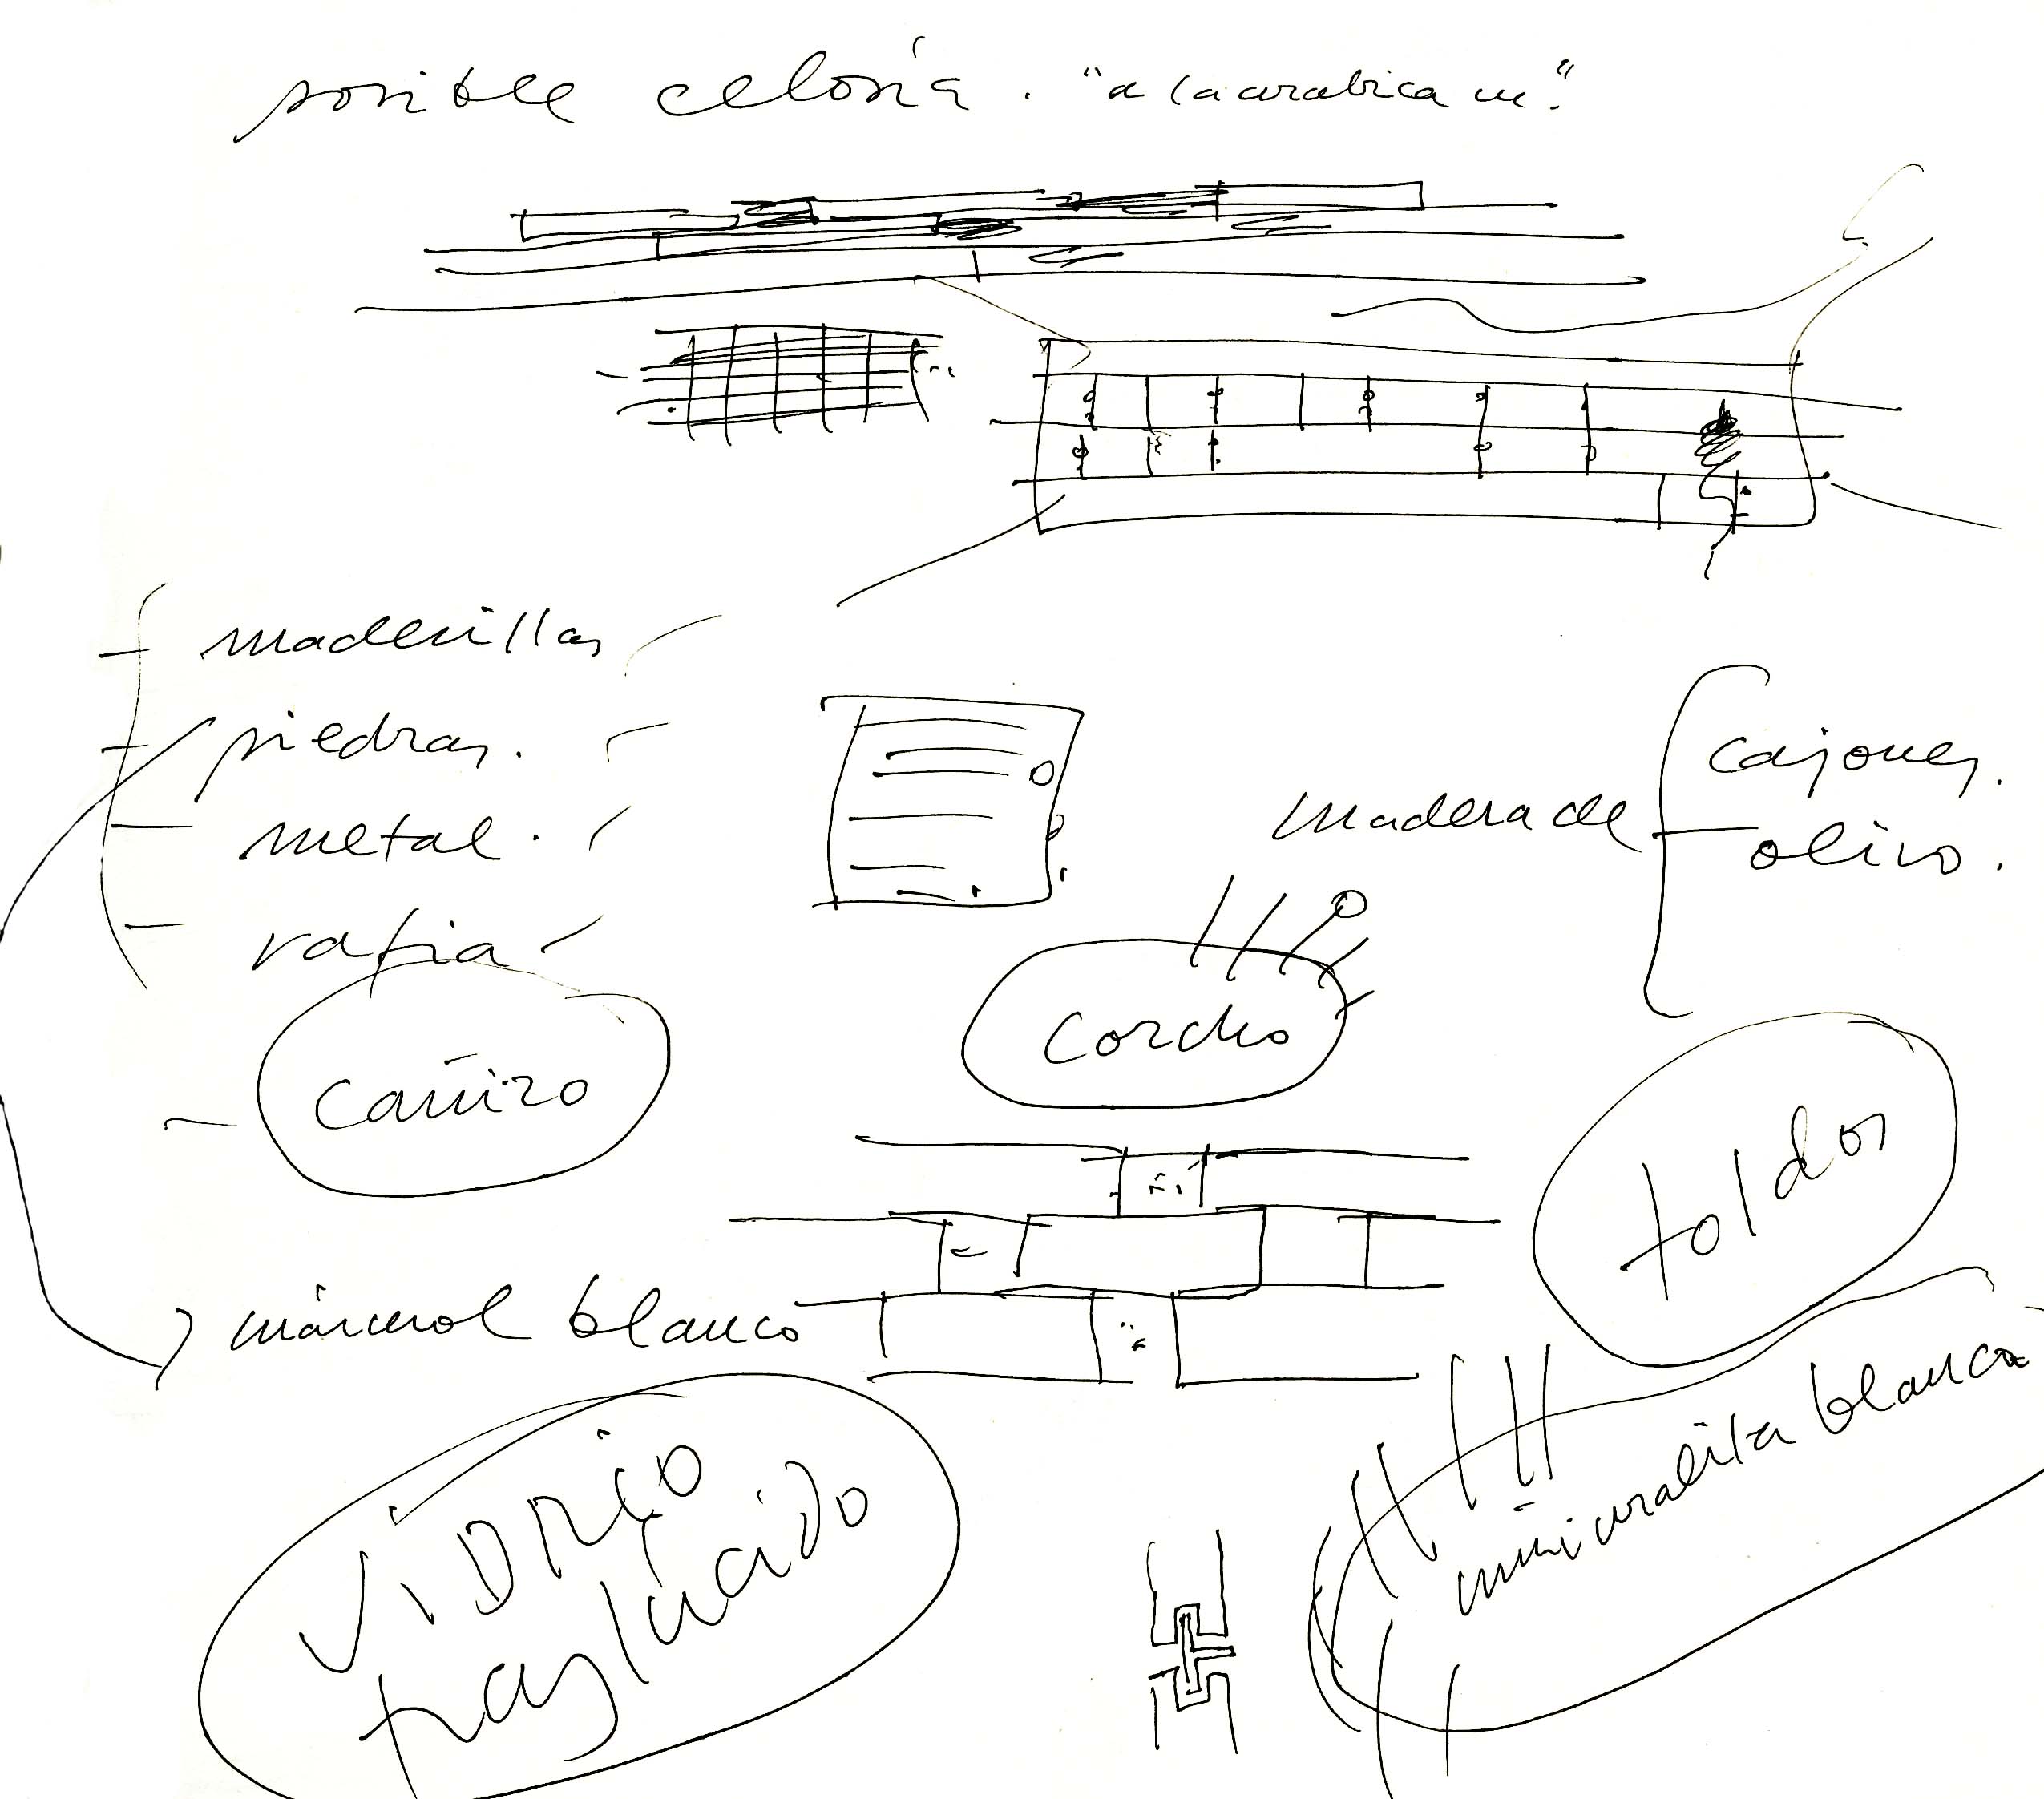 posible celosía. "a la arabica
maderillas
piedras.
metal.
rafia
cañizo
madera de
cajones.
olivo.
corcho
toldos
mármol blanco
miniuralita blanca
VIDRIO
traslúcido